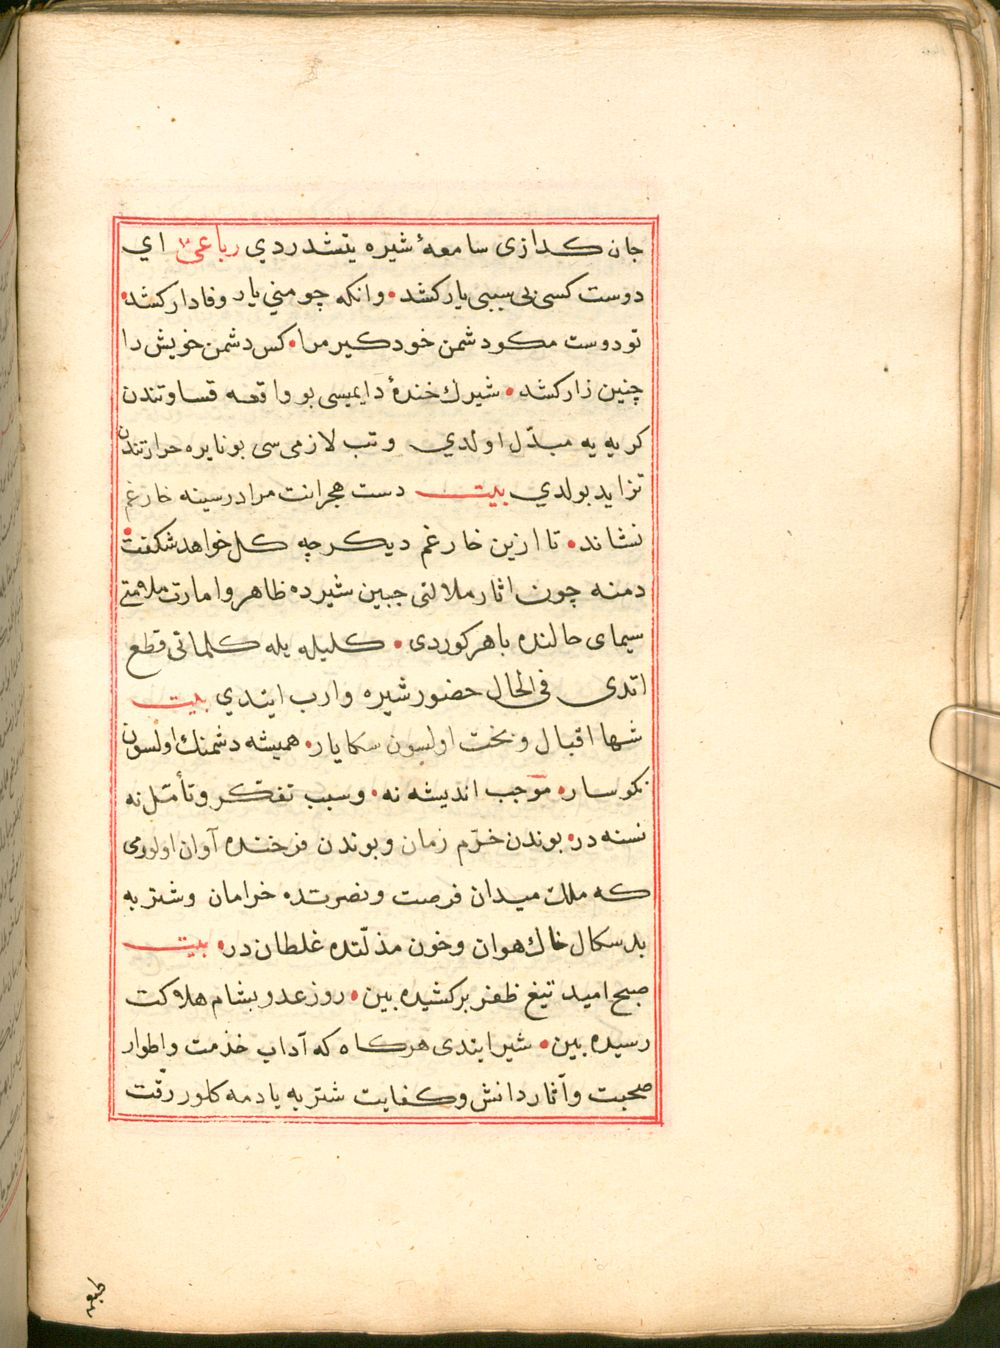 جان كدازى سامعهٔ شيره يتشدردي رباعى ای
دوست كسى بى سببى يار كشد • وانكه چو مني يار وفادار كشد •
تو دوست مكو دشمن خود كير مرا • كس دشمن خويش را
چنين زار كشد • شيرك خندهٔ دايميسى بو واقعه قساوتندن
كريه يه مبدّل اولدي وتب لازمى سى بو نايره حرارتندن
تزايد بولدي بيت دست هجرانت مرا در سينه خار غم
نشاند • تا ازين خار غم ديكر چه كل خواهد شكفت •
دمنه چون اثار ملالتى جبين شيرده ظاهر وامارت ملامتى
سيماى حالنده باهر كوردى • كليله يله كلماتى قطع
اتدى فى الحال حضور شيره وارب ايتدي بيت
شها اقبال وبخت اولسون سكا يار • هميشه دشمنك اولسون
نكوسار • موجب انديشه نه • وسبب تفكّر وتأمّل نه
نسنه در • بوندن خرّم زمان وبوندن فرخنده آوان اولورمى
كه ملك ميدان فرصت ونصرتده خرامان وشتربه
بدسكال خاك هوان وخون مذلّتده غلطان در • بيت
صبح اميد تيغ ظفر بركشيده بين • روز عدو بشام هلاكت
رسيده بين • شير ايتدى هركاه كه آداب خذمت واطوار
صحبت وآثار دانش وكفايت شتربه يادمه كلور رقّت